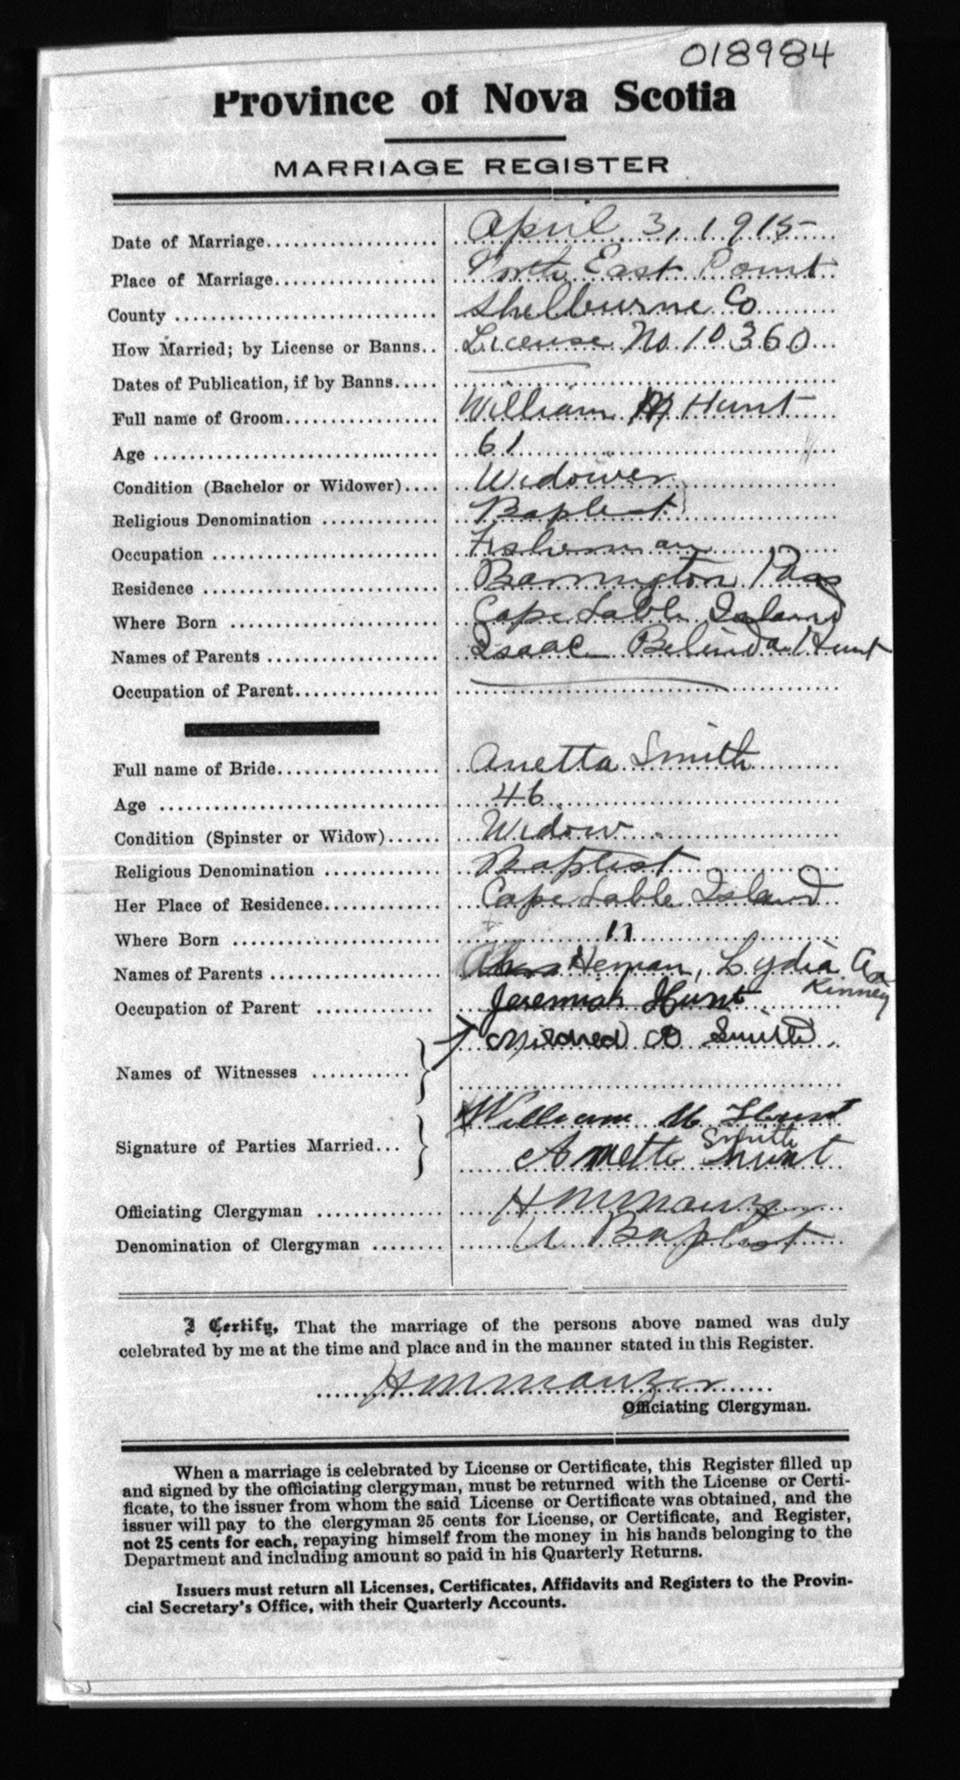 018984
Province of Nova Scotia
MARRIAGE REGISTER
Date of Marriage.................... April 3, 1915
Place of Marriage................... North East Point
County .............................. Shelburne Co
How Married; by License or Banns.. License No 10360
Dates of Publication, if by Banns.....
Full name of Groom.................. William M Hunt
Age ................................. 61
Condition (Bachelor or Widower).... Widower
Religious Denomination ............. Baptist
Occupation .......................... Fisherman
Residence ........................... Barrington Pass
Where Born ......................... Cape Sable Island
Names of Parents ................... Isaac Belinda Hunt
Occupation of Parent.................
Full name of Bride................... Anetta Smith
Age ................................. 46
Condition (Spinster or Widow)...... Widow
Religious Denomination ............. Baptist
Her Place of Residence.............. Cape Sable Island
Where Born ......................... 11
Names of Parents ................... Heman, Lydia Ann Kinney
Occupation of Parent ...............
Jeremiah Hunt
Names of Witnesses ........... } Mildred Smith
William M Hunt
Signature of Parties Married... } Annetta Smith Hunt
Officiating Clergyman .............. H M Manzer
Denomination of Clergyman ........ U Baptist
I Certify, That the marriage of the persons above named was duly
celebrated by me at the time and place and in the manner stated in this Register.
H M Manzer
Officiating Clergyman.
When a marriage is celebrated by License or Certificate, this Register filled up
and signed by the officiating clergyman, must be returned with the License or Certi-
ficate, to the issuer from whom the said License or Certificate was obtained, and the
issuer will pay to the clergyman 25 cents for License, or Certificate, and Register,
not 25 cents for each, repaying himself from the money in his hands belonging to the
Department and including amount so paid in his Quarterly Returns.
Issuers must return all Licenses, Certificates, Affidavits and Registers to the Provin-
cial Secretary's Office, with their Quarterly Accounts.